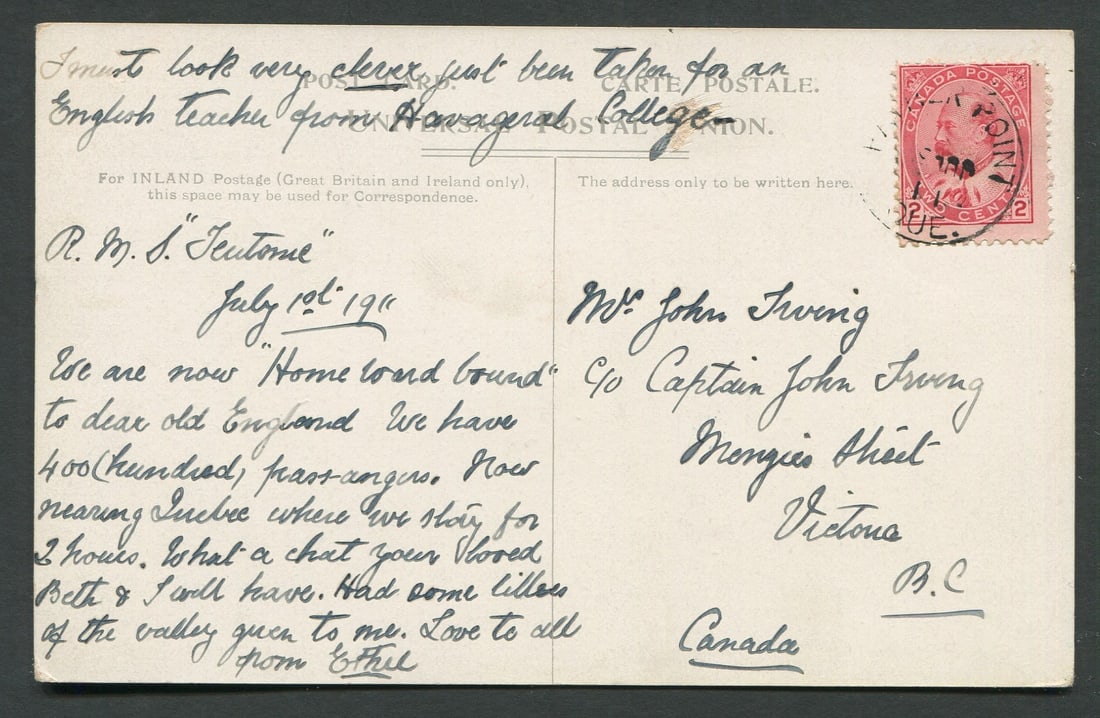 I must look very clever just been taken for an
English teacher from Havageral College
POST CARD.
CARTE POSTALE.
UNIVERSAL POSTAL UNION.
For INLAND Postage (Great Britain and Ireland only),
this space may be used for Correspondence.
The address only to be written here.
CANADA POSTAGE
2 TWO CENTS 2
ER POINT
QUE.
R. M. S. "Teutonic"
July 1st 1911
We are now "Homeward bound"
to dear old England We have
400 (hundred) pass-angers. Now
nearing Quebec where we stay for
2 hours. What a chat your loved
Beth & I will have. Had some lillies
of the valley given to me. Love to all
from Ethel
Mrs John Irving
c/o Captain John Irving
Menzies Street
Victoria
B.C
Canada